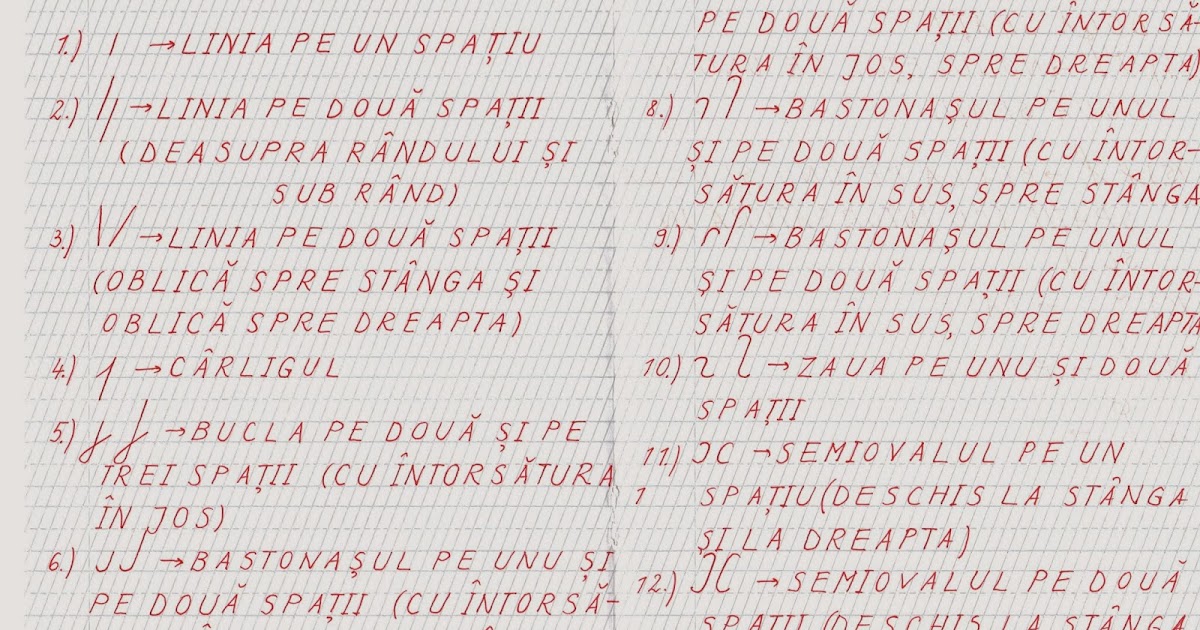 1.) → LINIA PE UN SPAȚIU
2.) → LINIA PE DOUĂ SPAȚII
(DEASUPRA RÂNDULUI ȘI
SUB RÂND)
3.) → LINIA PE DOUĂ SPAȚII
(OBLICĂ SPRE STÂNGA ȘI
OBLICĂ SPRE DREAPTA)
4.) → CÂRLIGUL
5.) → BUCLA PE DOUĂ ȘI PE
TREI SPAȚII (CU ÎNTORSĂTURA
ÎN JOS)
6.) → BASTONAȘUL PE UNU ȘI
PE DOUĂ SPAȚII (CU ÎNTORSĂ-
PE DOUĂ SPAȚII (CU ÎNTORSĂ-
TURA ÎN JOS, SPRE DREAPTA)
8.) → BASTONAȘUL PE UNUL
ȘI PE DOUĂ SPAȚII (CU ÎNTOR-
SĂTURA ÎN SUS, SPRE STÂNGA
9.) → BASTONAȘUL PE UNUL
ȘI PE DOUĂ SPAȚII (CU ÎNTOR-
SĂTURA ÎN SUS, SPRE DREAPTA
10.) → ZAUA PE UNU ȘI DOUĂ
SPAȚII
11.) → SEMIOVALUL PE UN
1 SPAȚIU (DESCHIS LA STÂNGA
ȘI LA DREAPTA)
12.) → SEMIOVALUL PE DOUĂ
SPAȚII (DESCHIS LA STÂNGA